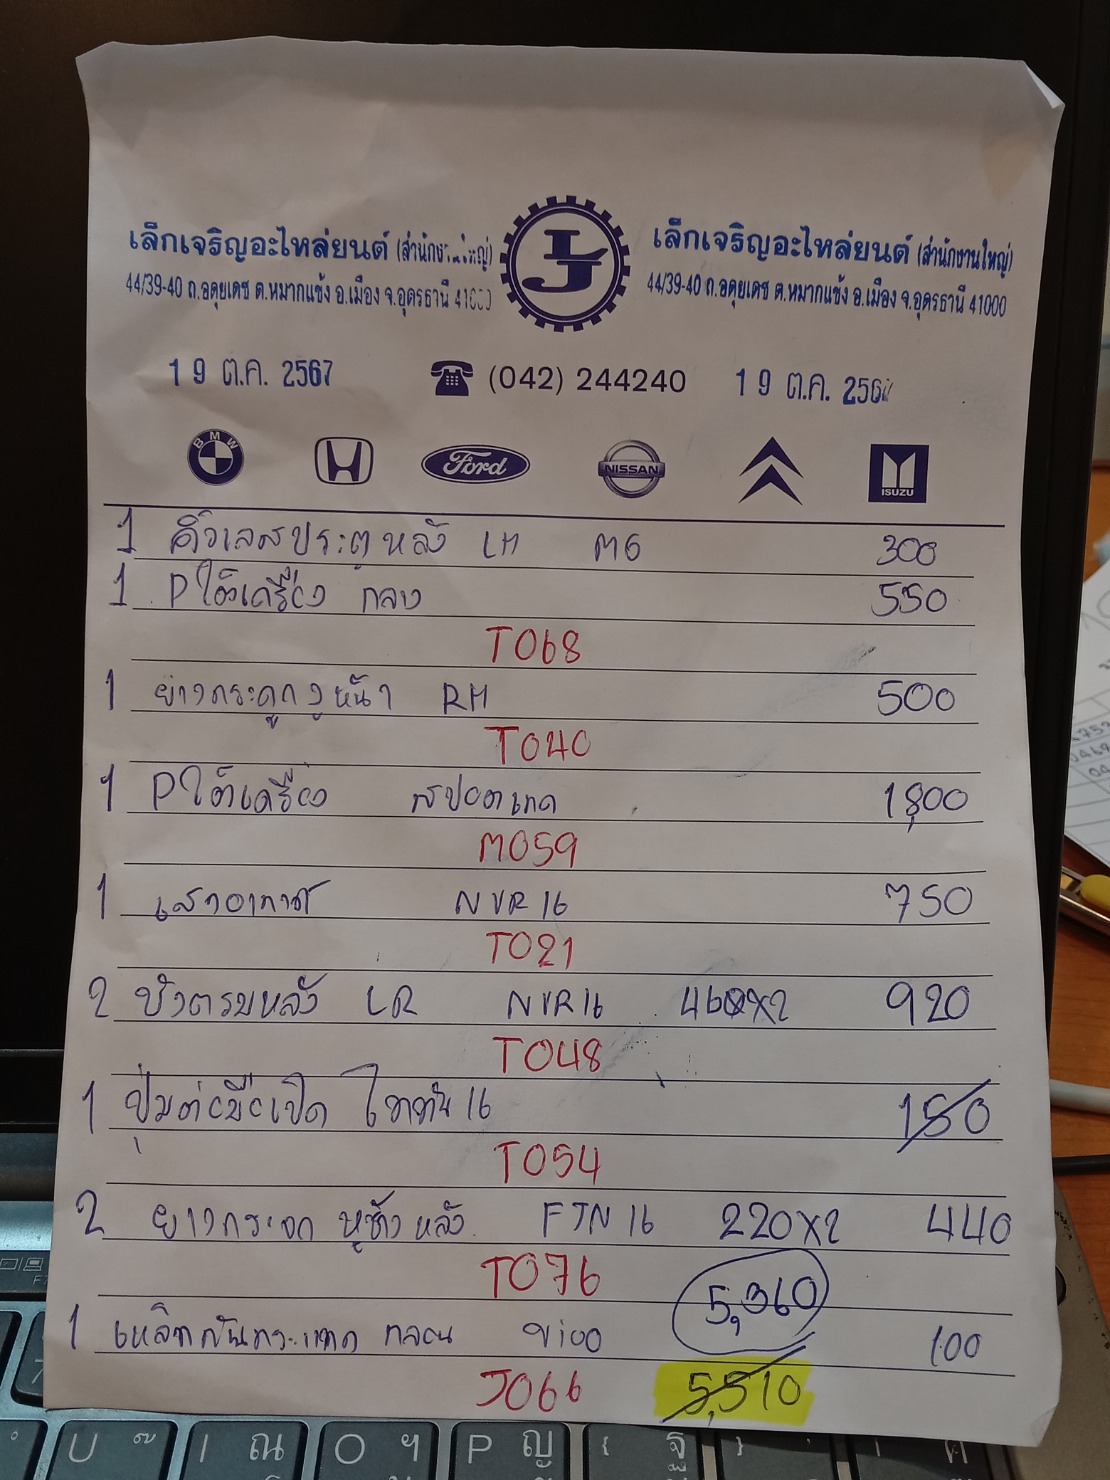 เล็กเจริญอะไหล่ยนต์ (สำนักงานใหญ่) เล็กเจริญอะไหล่ยนต์ (สำนักงานใหญ่)
44/39-40 ถ.อดุยเดช ต.หมากแข้ง อ.เมือง จ.อุดรธานี 41000 44/39-40 ถ.อดุยเดช ต.หมากแข้ง อ.เมือง จ.อุดรธานี 41000
LJ
19 ต.ค. 2567 (042) 244240 19 ต.ค. 2567
BMW Ford NISSAN ISUZU
1 คิ้วเลสประตูหลัง LH M6 300
1 Pใต้เครื่อง กลาง 550
T068
1 ยางกระดูกงูหน้า RH 500
T040
1 Pใต้เครื่อง สปอตเทค 1,800
M059
1 เสาอากาศ NVR16 750
T021
2 บังตรมหลัง LR NVR16 460x2 920
T048
1 ปุ่มต่อมือเปิด ไททัน16 150
T054
2 ยางกระจก หูช้าง หลัง FTN16 220x2 440
T076 5,360
1 เหล็กกันกระแทก vigo 100
J066 5,510